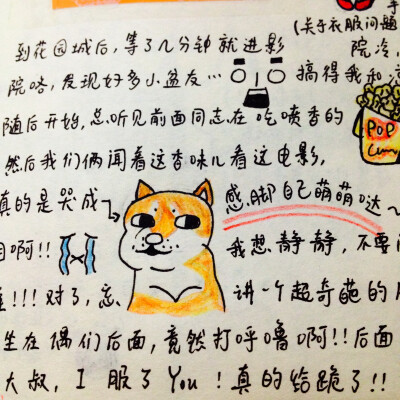 手
(关于衣服问题
到花园城后,等了几分钟就进影
院冷,
院咯,发现好多小盆友…
搞得我和
随后开始,总听见前面同志在吃喷香的
POP
Corn
然后我们俩闻着这香味儿看这电影,
真的是哭成
感脚自己萌萌哒~
啊!!
我想静静,不要
!!!对了,忘
讲一个超奇葩的
生在偶们后面,竟然打呼噜啊!!后面
大叔,I服了You!真的给跪了!!